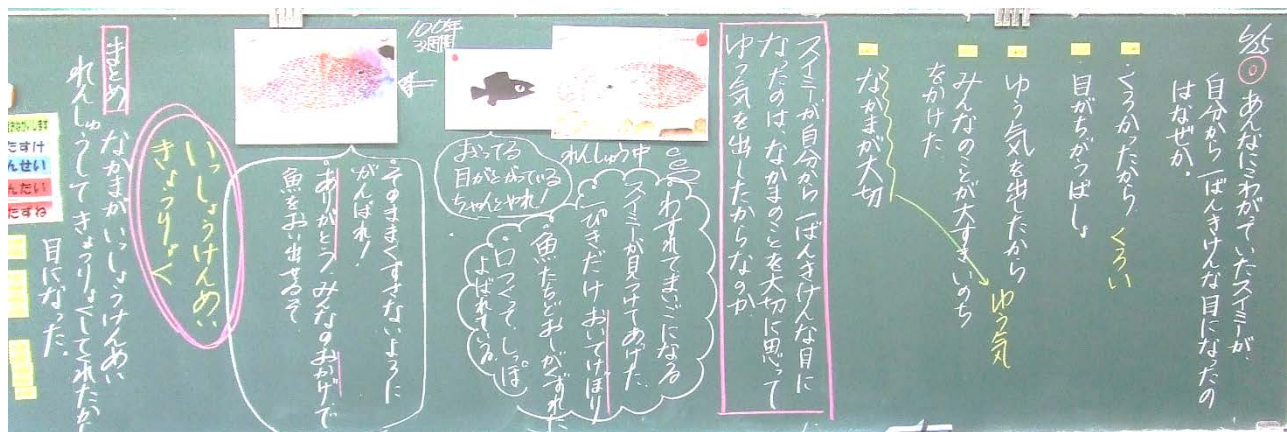 6/25
○ あんなにこわがっていたスイミーが、
自分から一ばんきけんな目になったの
はなぜか。
・くろかったから くろい
・目がちがうばしょ
ゆう気を出したから ゆう気
みんなのことが大すき いのち
をかけた
なかまが大切
スイミーが自分から一ばんきけんな目に
なったのは、なかまのことを大切に思って
ゆう気を出したからなのか
れんしゅう中
わすれてまいごになる
スイミーが見つけてあげた
一ぴきだけおいてけぼり
魚たちどおしがくずれた
口つくって、しっぽ
よばれている。
おってる
目がとがっている
ちゃんとやれ!
100年
3週間
そのままくずさないように
がんばれ!
ありがとう。みんなのおかげで
魚をおい出せるぞ
いっしょうけんめい
きょうりょく
まとめ
なかまがいっしょうけんめい
れんしゅうしてきょうりょくしてくれたから
目になった。
たすけ
んせい
んたい
たずね